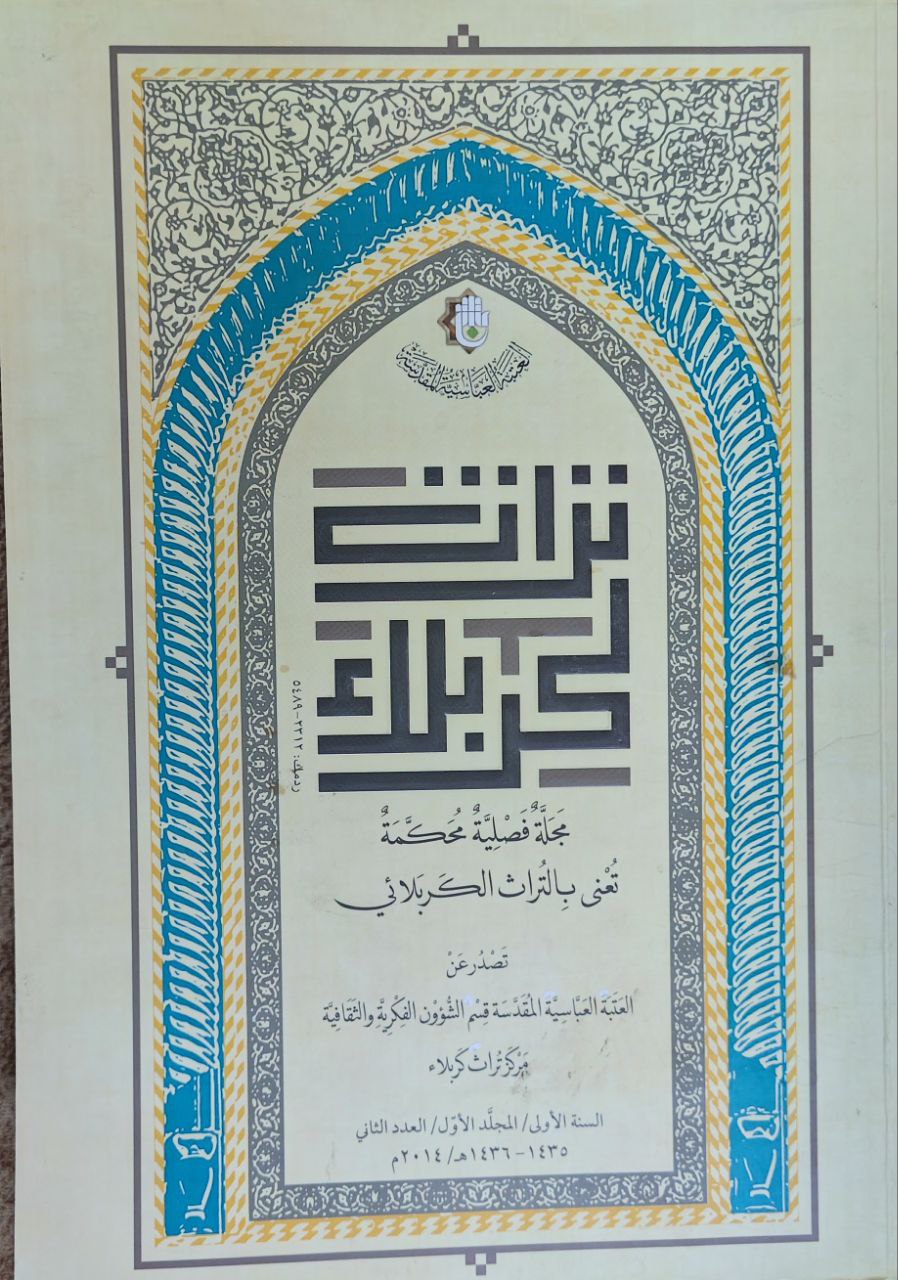 العتبة العباسية المقدسة
تراث
كربلاء
ردمك: ٢٣١٢-٥٤٨٩
مَجَلَّةٌ فَصْلِيَّةٌ مُحَكَّمَةٌ
تُعْنى بِالتُراث الكَربَلائي
تَصْدُر عَنْ
العَتَبَة العَبَّاسِيَّة المُقَدَّسَة قِسْم الشُّؤُون الفِكْرِيَّةِ والثَقَافِيَّة
مَركَز تُراث كَربلاء
السنة الأولى/ المجلَّد الأوّل/ العدد الثاني
١٤٣٥-١٤٣٦هـ/ ٢٠١٤م